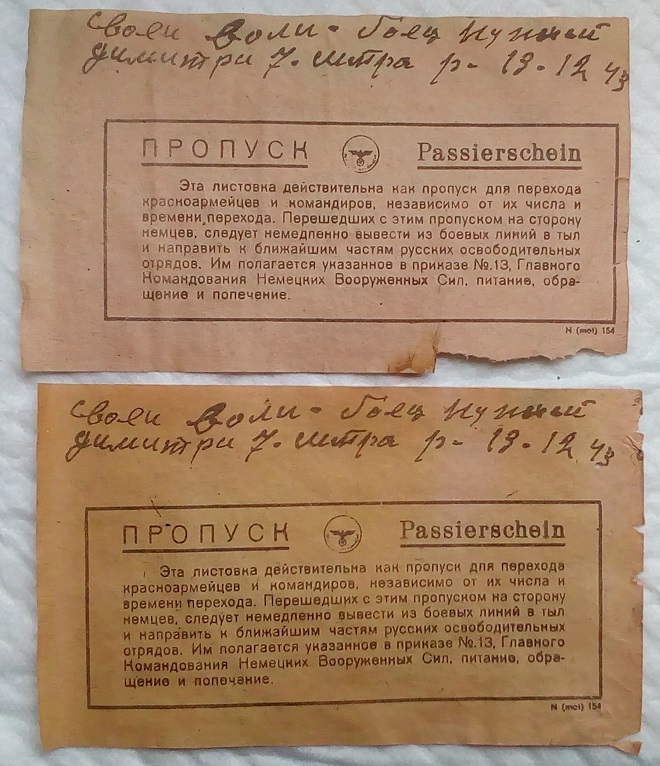 своей воли - боец нужный
димитри 7. штра р - 13 - 12 43
ПРОПУСК Passierschein
Эта листовка действительна как пропуск для перехода
красноармейцев и командиров, независимо от их числа и
времени перехода. Перешедших с этим пропуском на сторону
немцев, следует немедленно вывести из боевых линий в тыл
и направить к ближайшим частям русских освободительных
отрядов. Им полагается указанное в приказе №.13, Главного
Командования Немецких Вооруженных Сил, питание, обра-
щение и попечение.
N (mot) 154
своей воли - боец нужный
димитри 7. штра р - 13 - 12 43
ПРОПУСК Passierschein
Эта листовка действительна как пропуск для перехода
красноармейцев и командиров, независимо от их числа и
времени перехода. Перешедших с этим пропуском на сторону
немцев, следует немедленно вывести из боевых линий в тыл
и направить к ближайшим частям русских освободительных
отрядов. Им полагается указанное в приказе №.13, Главного
Командования Немецких Вооруженных Сил, питание, обра-
щение и попечание.
N (mot) 154